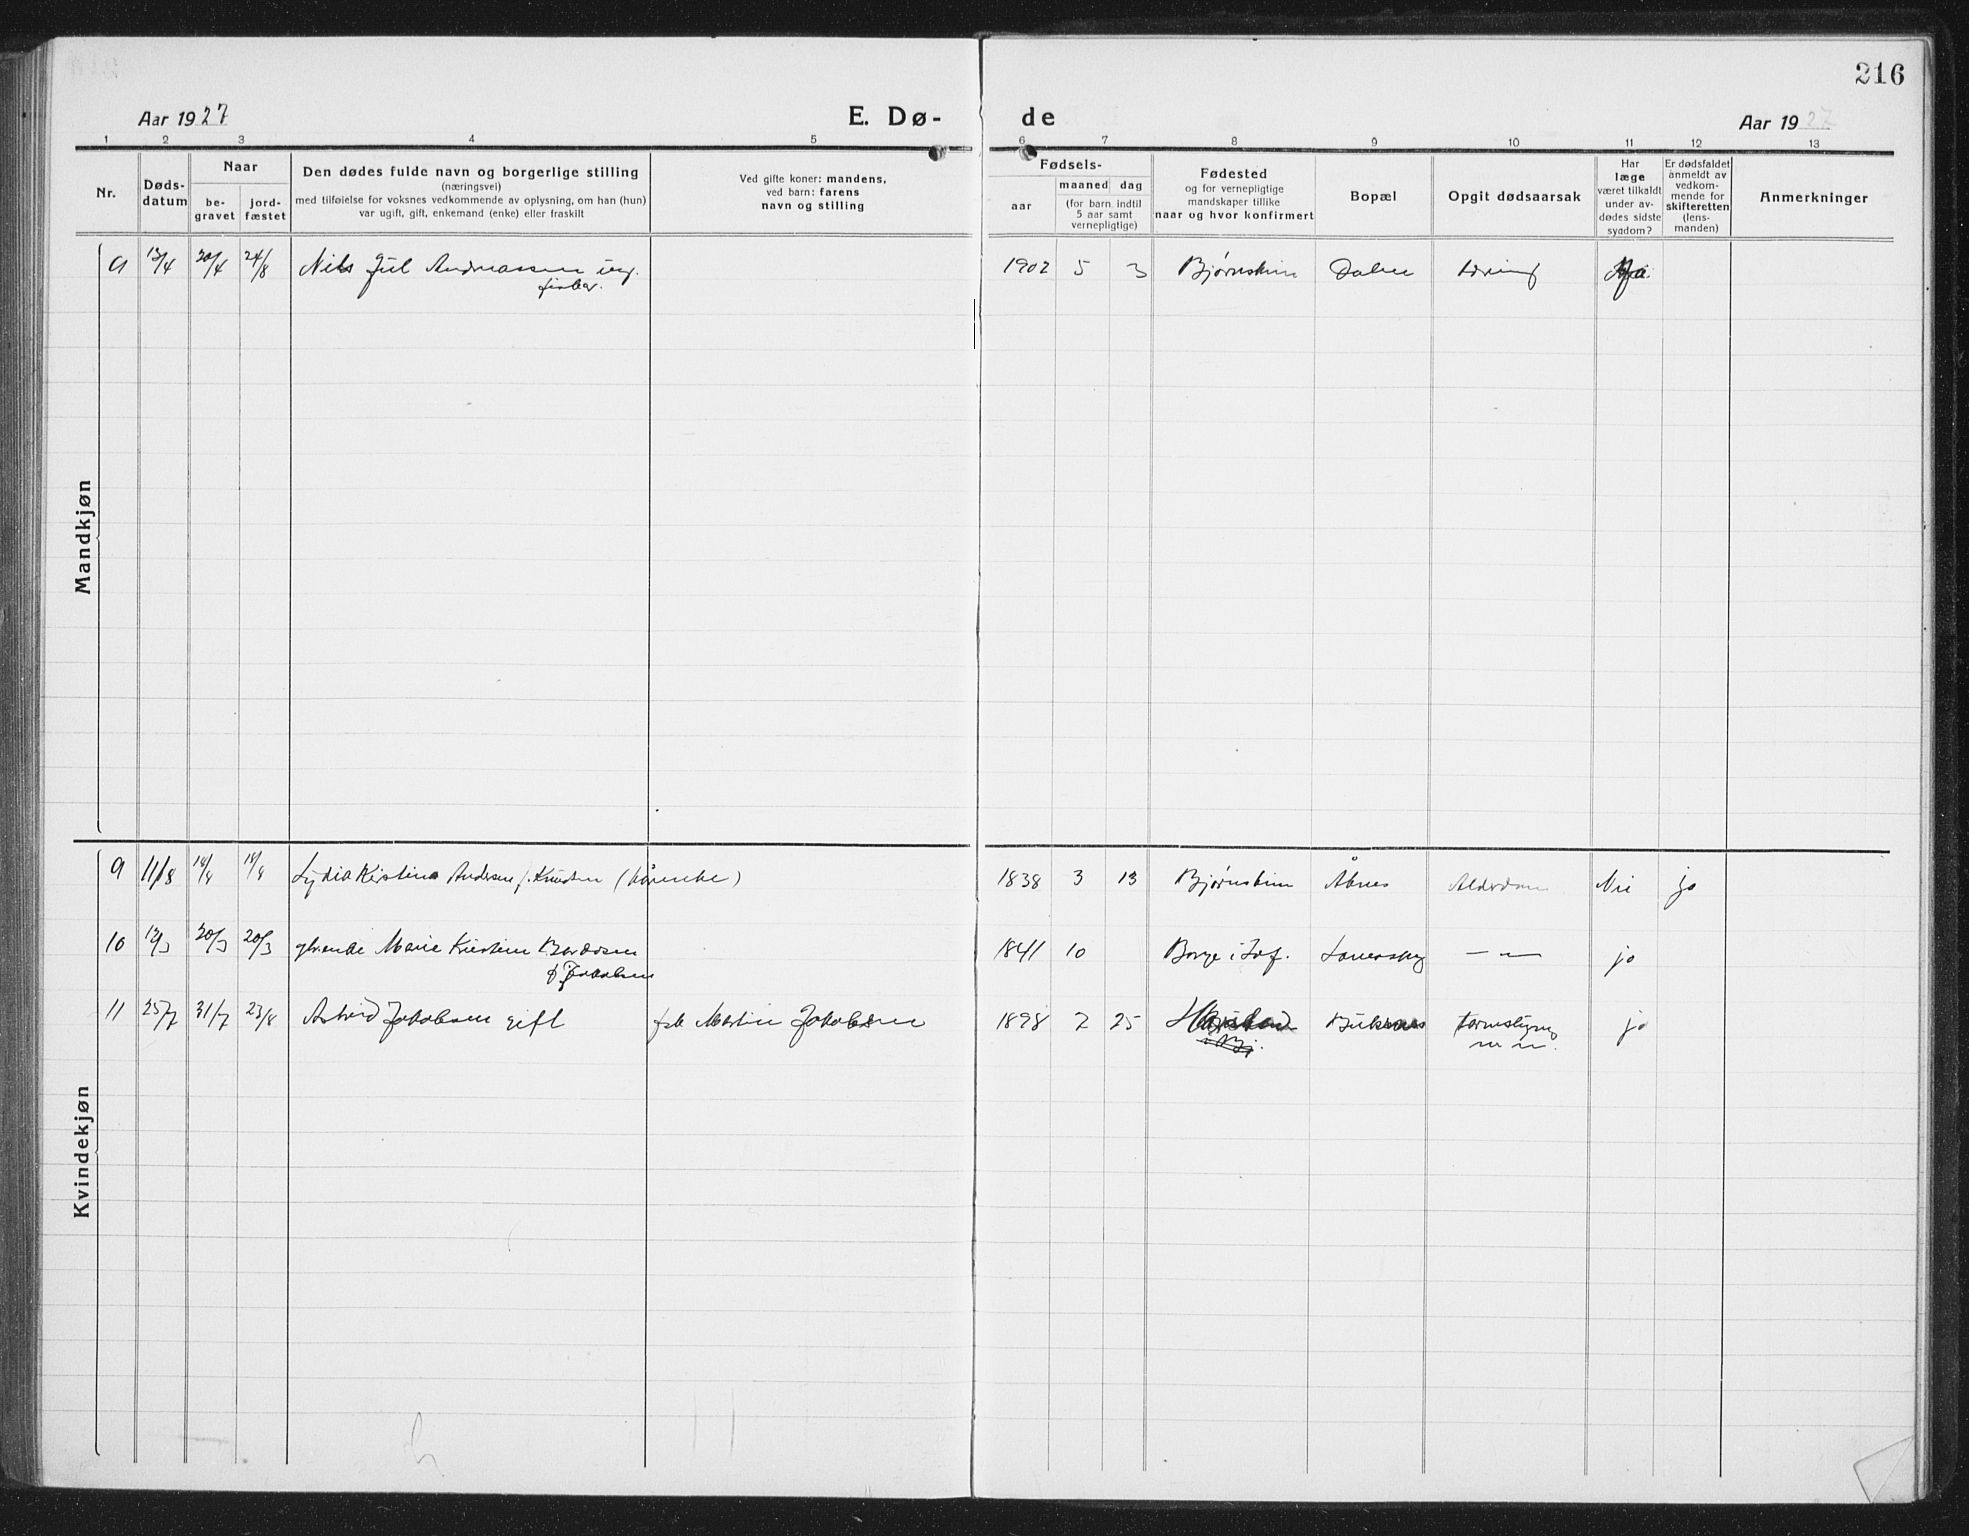 216
Aar 1927
E. Dø-
de
Aar 1927
1 2 3 4 5 6 7 8 9 10 11 12 13
Nr.
Døds-
datum
Naar
be-
gravet
jord-
fæstet
Den dødes fulde navn og borgerlige stilling
(næringsvei)
med tilføielse for voksnes vedkommende av oplysning, om han (hun)
var ugift, gift, enkemand (enke) eller fraskilt
Ved gifte koner: mandens,
ved barn: farens
navn og stilling
Fødsels-
aar
maaned dag
(for barn indtil
5 aar samt
vernepligtige)
Fødested
og for vernepligtige
mandskaper tillike
naar og hvor konfirmert
Bopæl
Opgit dødsaarsak
Har
læge
været tilkaldt
under av-
dødes sidste
sygdom?
Er dødsfaldet
anmeldt av
vedkom-
mende for
skifteretten
(lens-
manden)
Anmerkninger
Mandkjøn
9 13/4 20/4 24/8 Nils Jul Andreassen ug. 1902 5 3 Bjørnskin tæring Ja
fisker.
Kvindekjøn
9 11/8 18/8 18/8 Lydia Kristina Andersen f. Knudsen 1838 3 13 Bjørnskin Åbnes Alderdom Nei jo
10 12/3 20/3 20/3 Marie Kristine Bordosen 1841 10 Borge i Lof. — „ — jo
f. Jakobsen
11 25/7 31/7 23/8 Astrid Jakobsen gift fsk Martin Jakobsen 1898 2 25 Harstad Buksnes tarmslyng jo
i Bj.